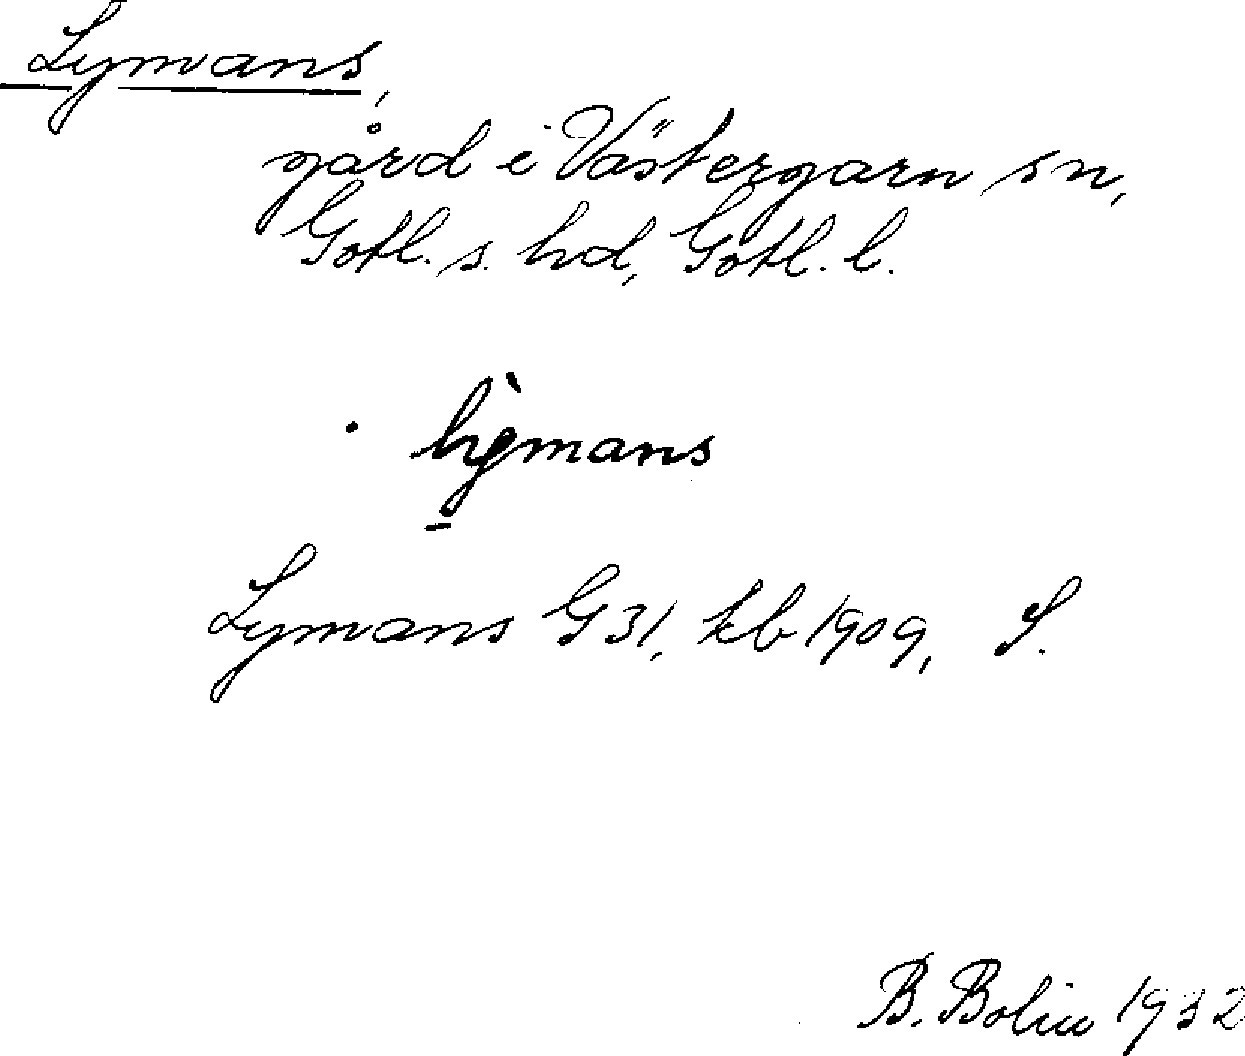 Lymans,
gård i Västergarn sn,
Gotl. s. hd, Gotl. l.
lỳmans
Lymans G 31, kb 1909, S.
B. Bolin 1932